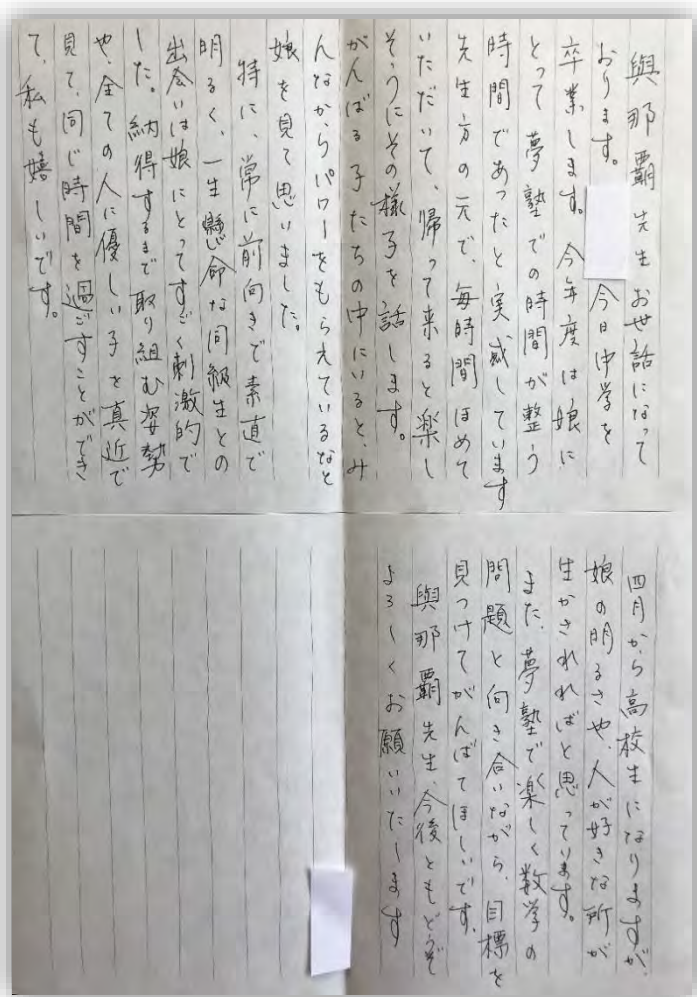 與那覇先生お世話になって
おります。 今日中学を
卒業します。今年度は娘に
とって夢塾での時間が整う
時間であったと実感しています
先生方の元で、毎時間ほめて
いただいて、帰って来ると楽し
そうにその様子を話します。
がんばる子たちの中にいると、み
んなからパワーをもらえているなと
娘を見て思いました。
特に、常に前向きで素直で
明るく、一生懸命な同級生との
出会いは娘にとってすごく刺激的で
した。納得するまで取り組む姿勢
や、全ての人に優しい子を真近で
見て、同じ時間を過ごすことができ
て、私も嬉しいです。
四月から高校生になりますが、
娘の明るさや、人が好きな所が
生かされればと思っています。
また、夢塾で楽しく数学の
問題と向き合いながら、目標を
見つけてがんばてほしいです。
與那覇先生、今後ともどうぞ
よろしくお願いいたします